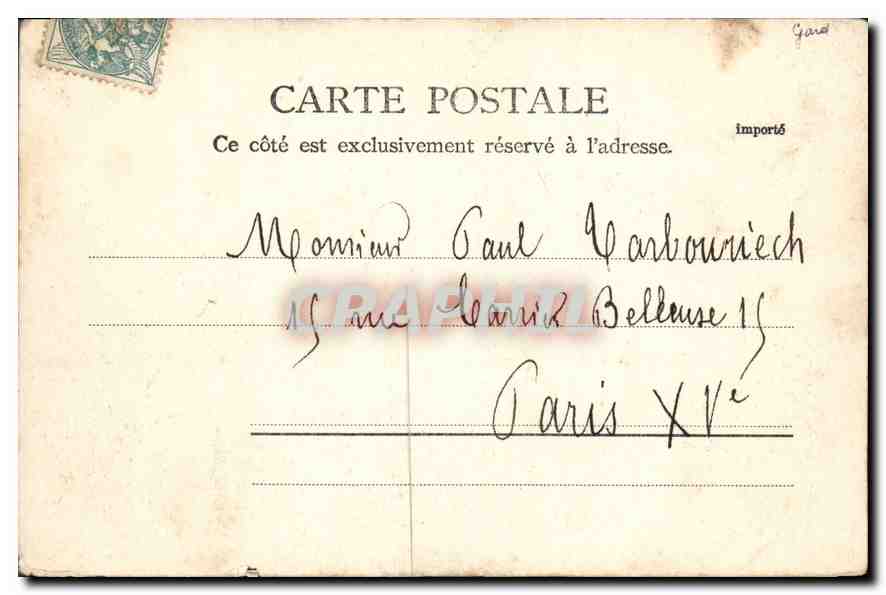 Gard
CARTE POSTALE
importé
Ce côté est exclusivement réservé à l'adresse.
Monsieur Paul Tarbouriech
15 rue Carrier Belleuse 15
Paris XVe
CPARHTI